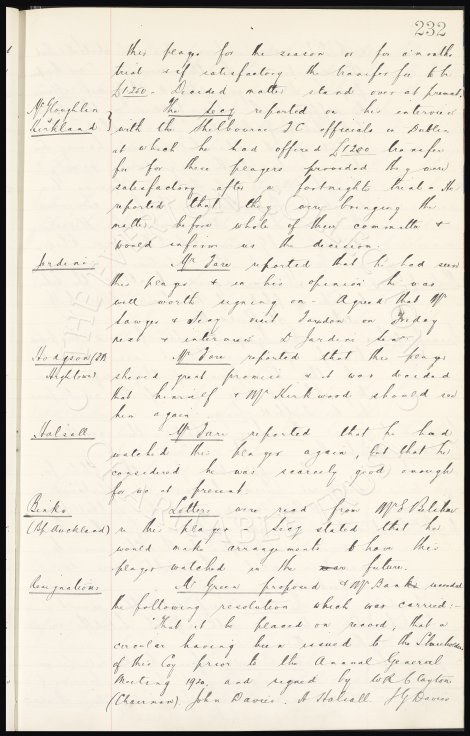 232
this player for the season or for a month's
trial & if satisfactory the transfer fee to be
£1250 - Decided matter stand over at present
McGloughlin & Kirkland } The Secy reported on his interview
with the Shelbourne FC officials in Dublin
at which he had offered £1200 transfer
fee for these players provided they were
satisfactory after a fortnight's trial & He
reported that they were bringing the
matter before whole of their committee &
would inform us the decision.
Jardine Mr Fare reported that he had seen
this player & in his opinion he was
well worth signing on - Agreed that Mr
Sawyer & Secy visit on Friday
next & interview D Jardine
Hodgson Mr Fare reported that this player
Hightown showed great promise & it was decided
that himself & Mr Kirkwood should see
him again
Halsall Mr Fare reported that he had
watched this player again, but that he
considered he was scarcely good enough
for us at present
Binks Letters were read from Mr E
(Bp Auckland) re this player - Secy stated that he
would make arrangements to have this
player watched in the near future.
Resignations Mr Green proposed & Mr Banks seconded
the following resolution which was carried:-
"That it be placed on record, that a
circular having been issued to the Shareholders
of this Coy prior to the Annual General
Meeting 1920, and signed by W R Clayton
(Chairman), John Davies, A Halsall, Davies